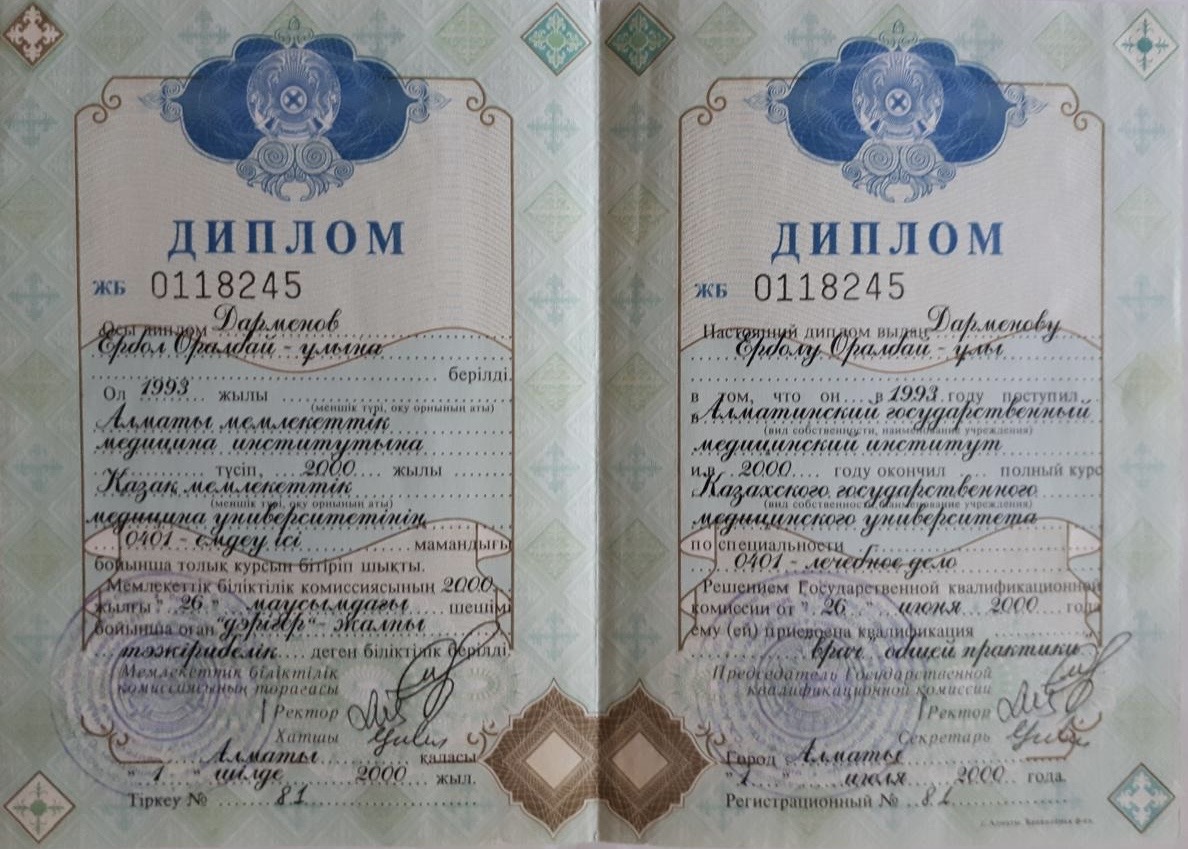 ДИПЛОМ
ЖБ 0118245
Осы диплом Дарменов
Ербол Оралбай - улына
берілді.
Ол 1993 жылы
(меншік түрі, оқу орнының аты)
Алматы мемлекеттік
медицина институтына
түсіп, 2000 жылы
Қазақ мемлекеттік
(меншік түрі, оқу орнының аты)
медицина университетінің
0401 - емдеу ісі мамандығы
бойынша толық курсын бітіріп шықты.
Мемлекеттік біліктілік комиссиясының 2000
жылғы " 26 " маусымдағы шешімі
бойынша оған "дәрігер"- жалпы
тәжірибелік деген біліктілік берілді.
Мемлекеттік біліктілік
комиссиясының төрағасы
Ректор
Хатшы
Алматы қаласы
" 1 " шілде 2000 жыл.
Тіркеу № 81
ДИПЛОМ
ЖБ 0118245
Настоящий диплом выдан Дарменову
Ерболу Оралбай - улы
в том, что он в 1993 году поступил
в Алматинский государственный
(вид собственности, наименование учреждения)
медицинский институт
и в 2000 году окончил полный курс
Казахского государственного
(вид собственности, наименование учреждения)
медицинского университета
по специальности
0401 - лечебное дело
Решением Государственной квалификационной
комиссии от " 26 " июня 2000 года
ему (ей) присвоена квалификация
врач общей практики
Председатель Государственной
квалификационной комиссии
Ректор
Секретарь
Город Алматы
" 1 " июля 2000 года.
Регистрационный № 81